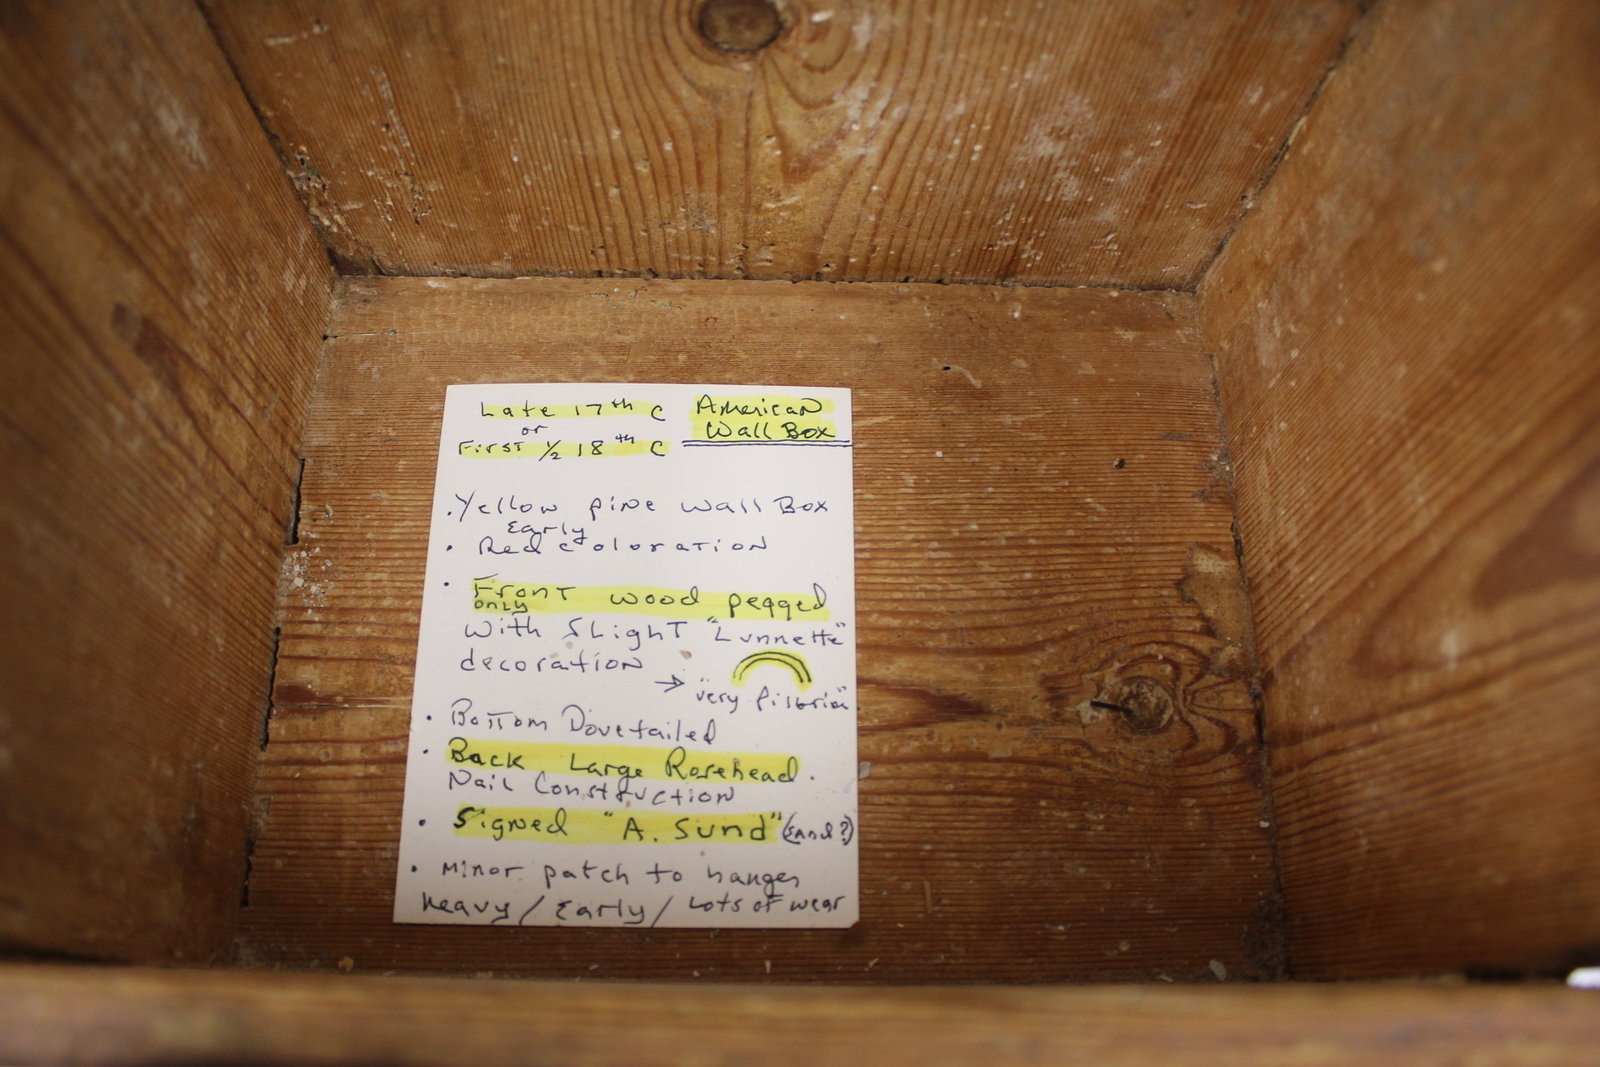 Late 17th C
or
First 1/2 18th C
American
Wall Box
· Yellow pine wall Box
Early
· Red coloration
· Front wood pegged
only
with slight "Lunnette"
decoration
→ "very
· Bottom Dovetailed
· Back Large Rosehead
Nail Construction
· Signed "A. Sund" (Sand?)
· Minor patch to hanger
heavy / Early / Lots of wear